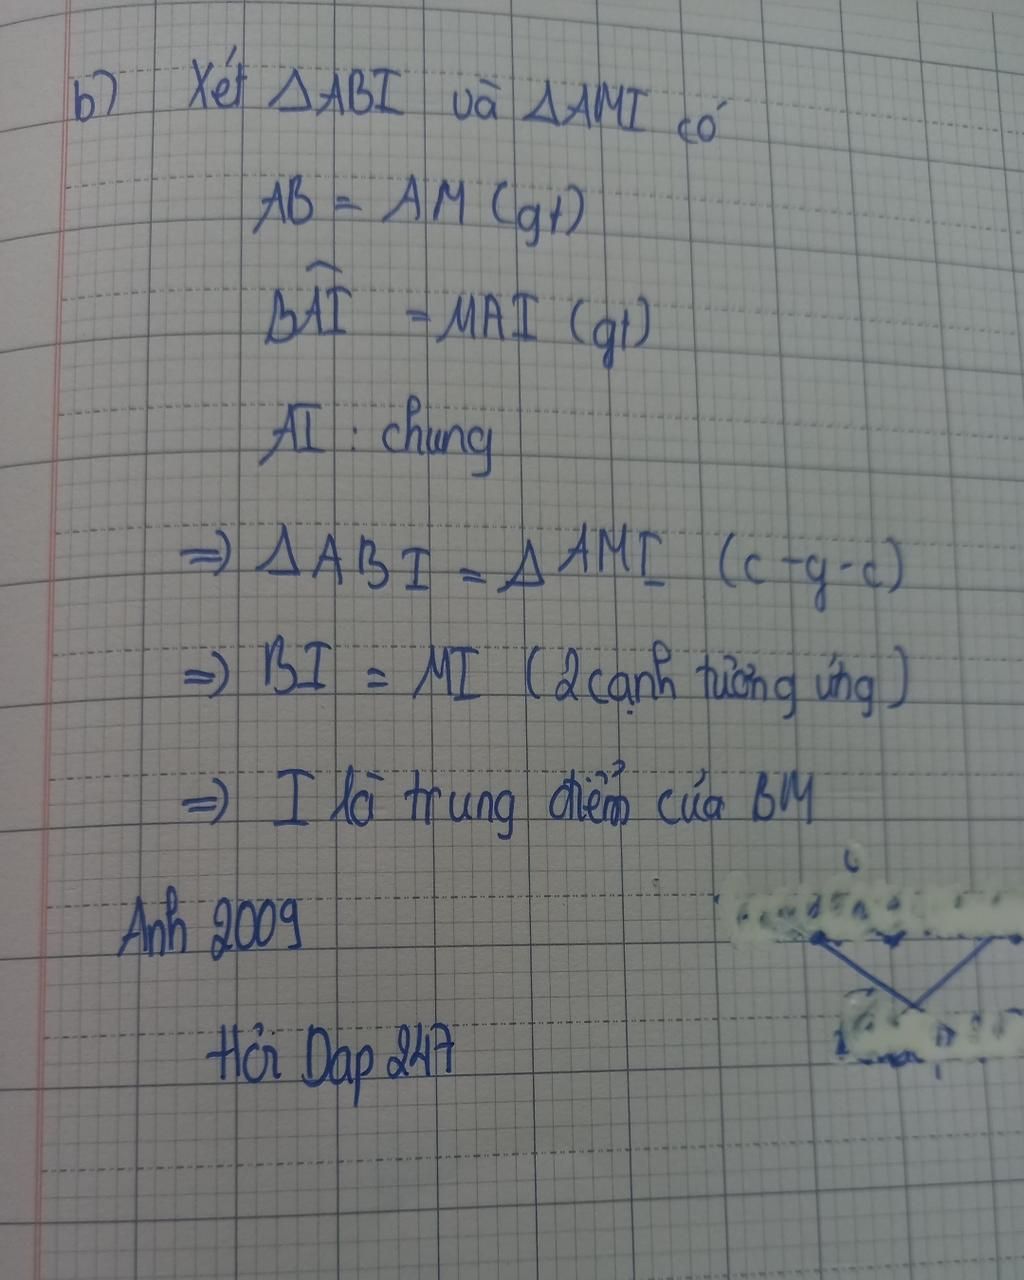 b) Xét ΔABI và ΔAMI có
AB = AM (gt)
BAI^ = MAI (gt)
AI : chung
=> ΔABI = ΔAMI (c-g-c)
=> BI = MI (2 cạnh tương ứng)
=> I là trung điểm của BM
Anh 2009
Hỏi Dap 247